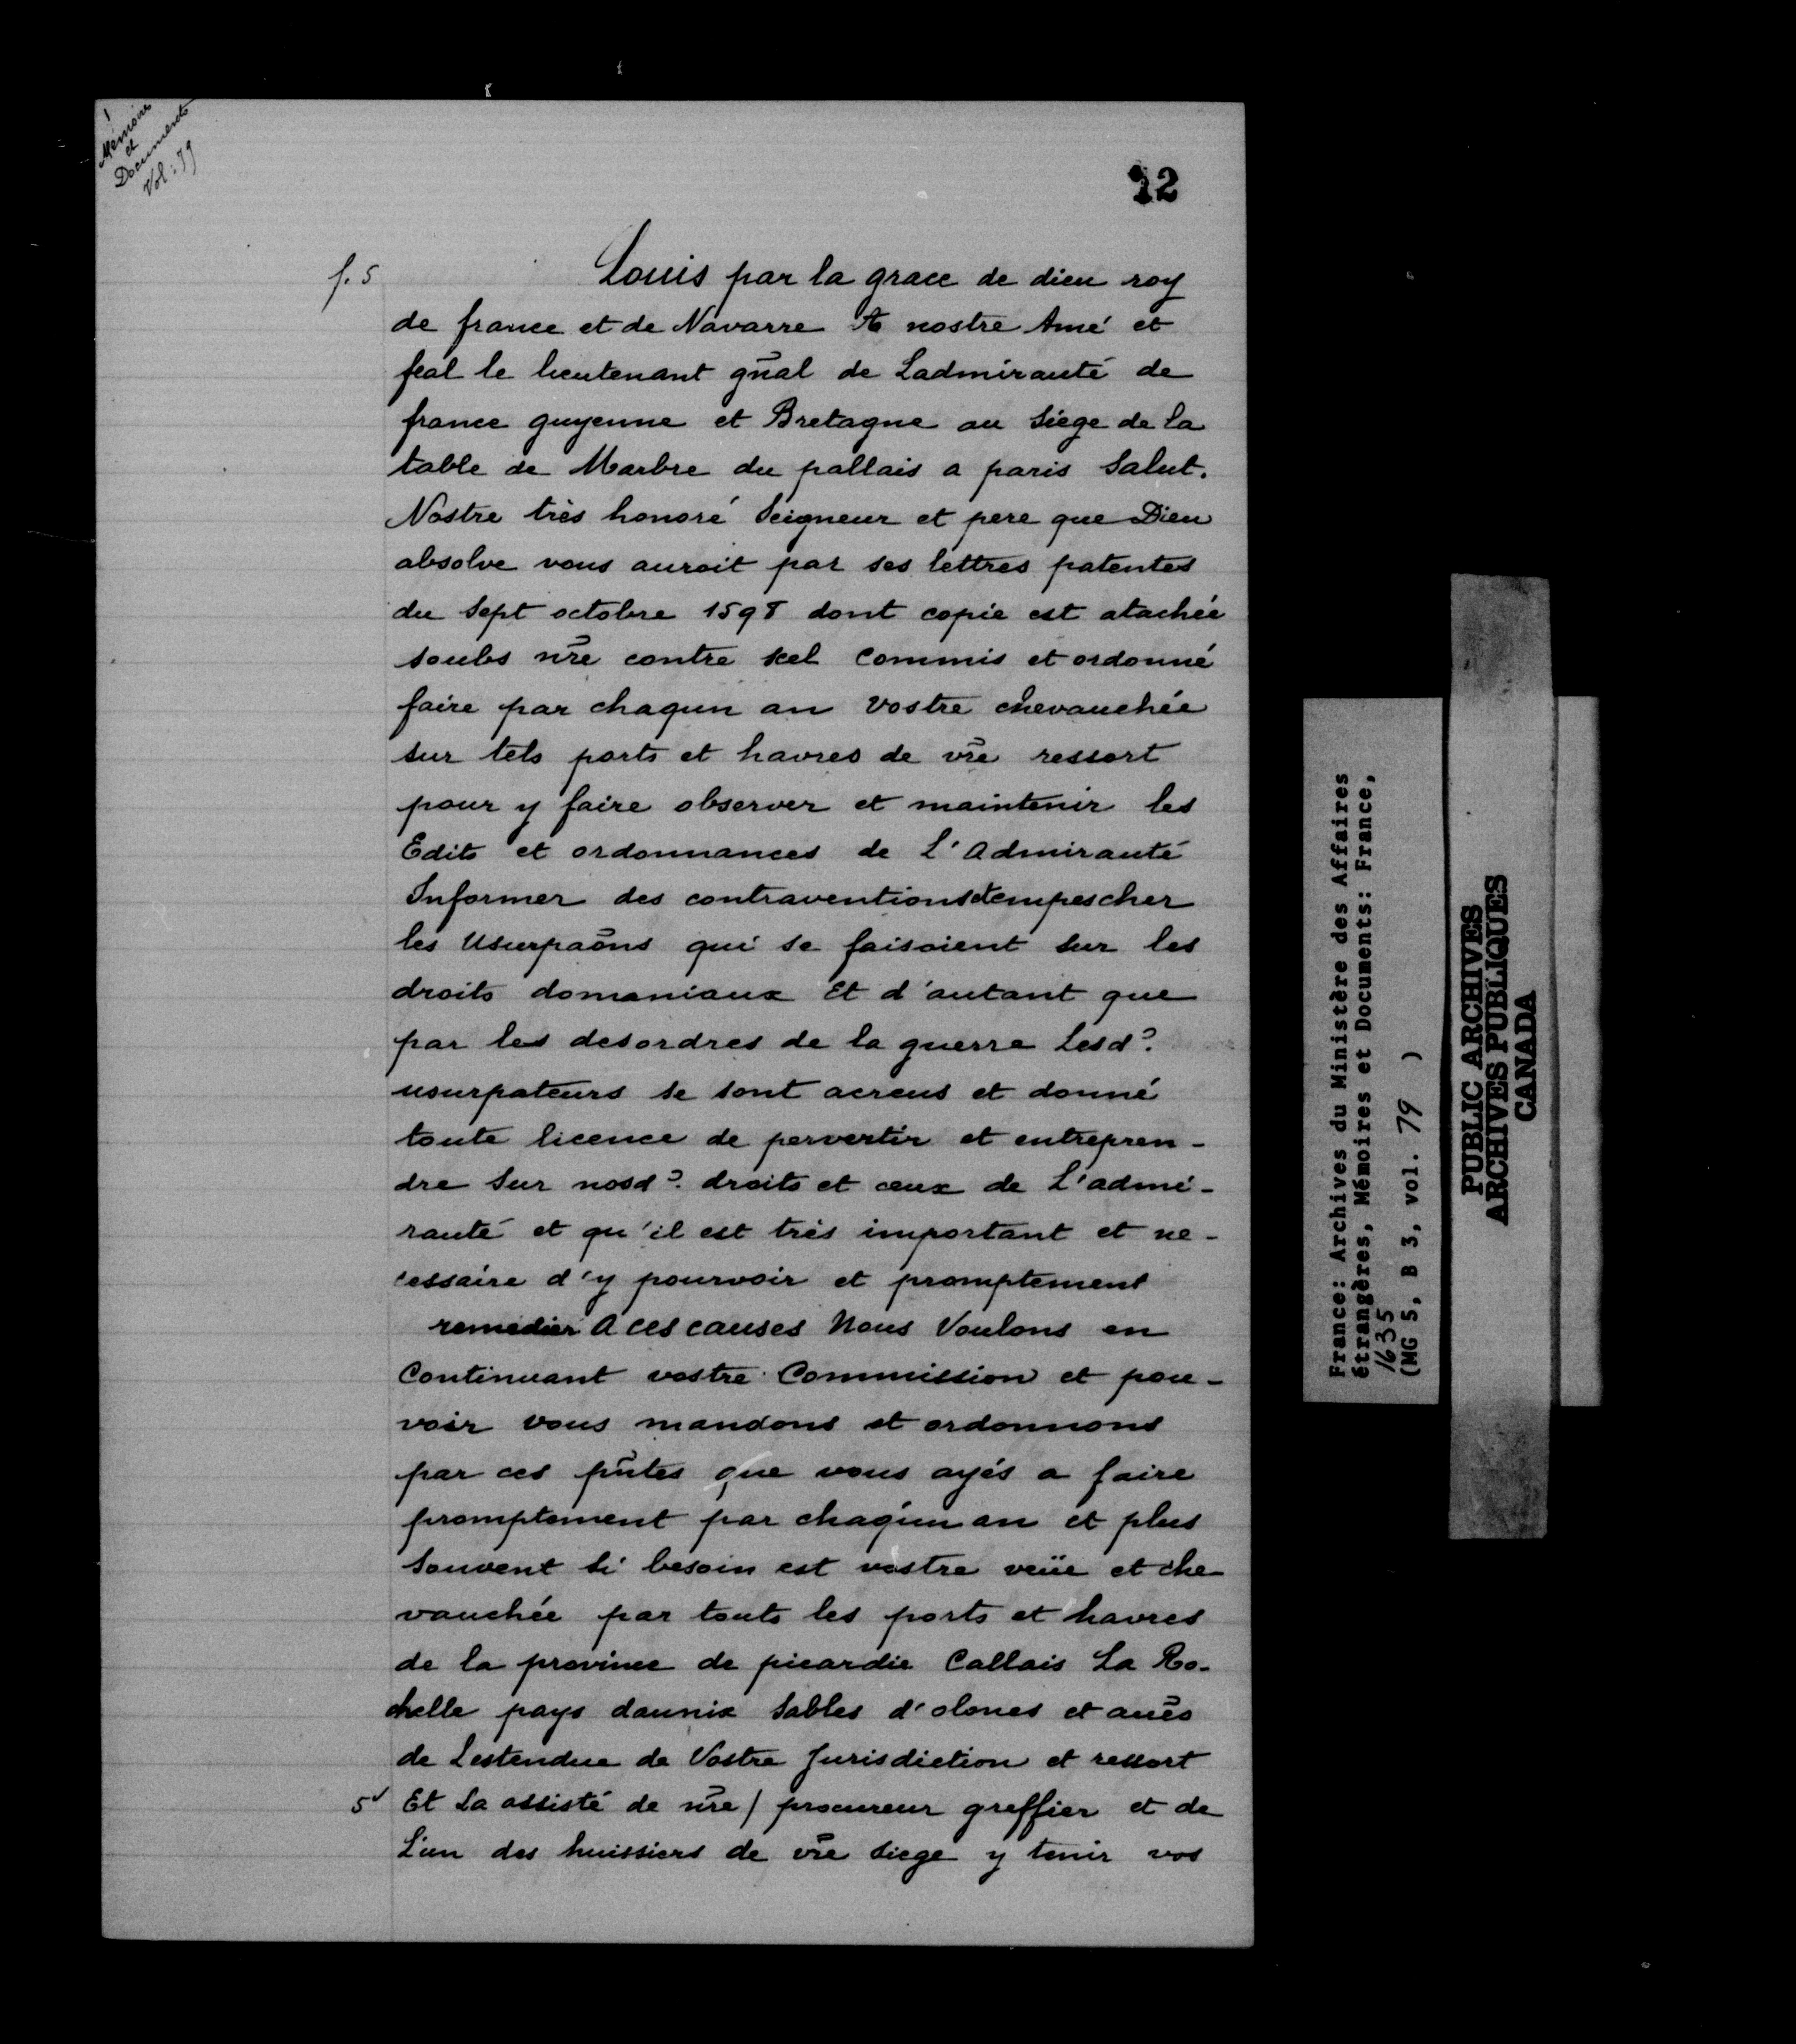 1
Mémoires
et
Documents
Vol: 79
12
f. 5
Louis par la grace de dieu roy
de france et de Navarre A nostre Amé et
feal le lieutenant gñal de Ladmirauté de
france guyenne et Bretagne au Siege de la
table de Marbre du pallais a paris Salut.
Nostre très honoré Seigneur et pere que Dieu
absolve vous auroit par ses lettres patentes
du Sept octobre 1598 dont copie est atachée
soubs nr̃e contre scel Commis et ordonné
faire par chaqun an Vostre chevauchée
sur tels ports et havres de vr̃e ressort
pour y faire observer et maintenir les
Edits et ordonnances de L'Admirauté
Informer des contraventions et empescher
les Usurpaõns qui se faisoient sur les
droits domaniaux Et d'autant que
par les desordres de la guerre Lesd?
usurpateurs se sont acreus et donné
toute licence de pervertir et entrepren-
dre sur nosd? droits et ceux de L'admi-
rauté et qu'il est très important et ne-
cessaire d'y pourvoir et promptement
remedier A ces causes Nous Voulons en
Continuant vostre Commission et pou-
voir vous mandons et ordonnons
par ces pñtes que vous ayés a faire
promptement par chaqun an et plus
Souvent si besoin est vostre veüe et che-
vauchée par touts les ports et havres
de la province de picardie Callais La Ro-
chelle pays daunix Sables d'olones et aũes
de Lestendue de Vostre Jurisdiction et ressort
5v Et La assisté de nr̃e / procureur greffier et de
L'un des huissiers de vr̃e siege y tenir vos
France: Archives du Ministère des Affaires
étrangères, Mémoires et Documents: France,
1635
(MG 5, B 3, vol. 79 )
PUBLIC ARCHIVES
ARCHIVES PUBLIQUES
CANADA